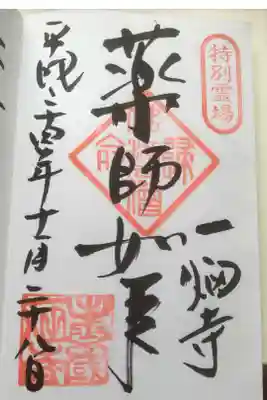 特別霊場
薬師如来
一畑寺
平成二十四年十一月二十八日